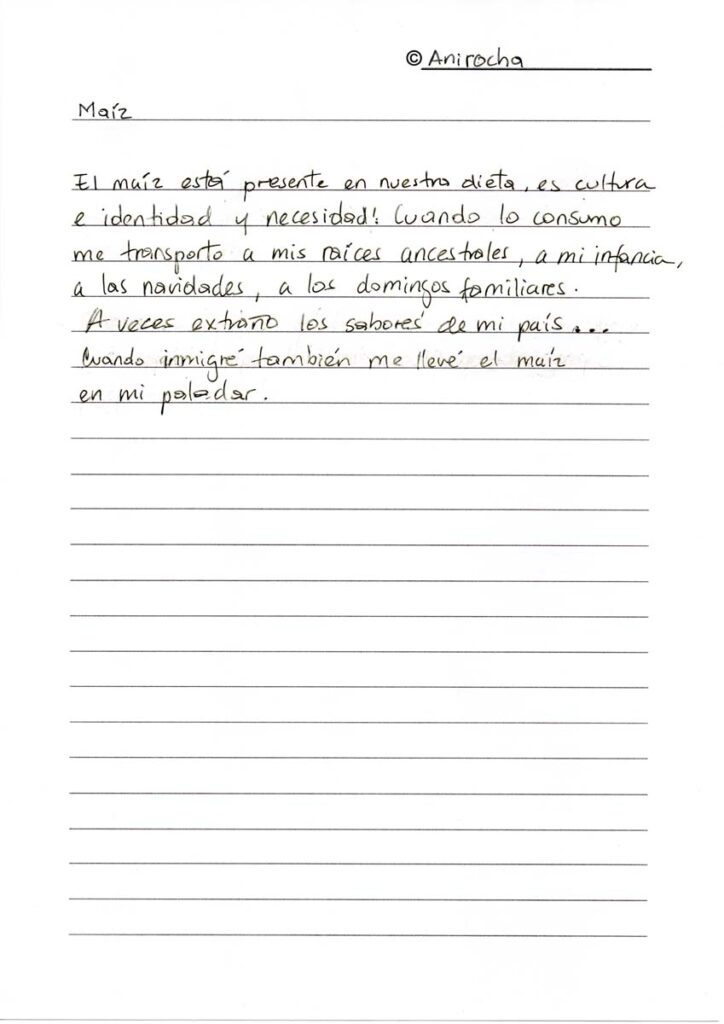 © Anirocha
Maíz
El maíz está presente en nuestra dieta, es cultura
e identidad y necesidad! Cuando lo consumo
me transporto a mis raíces ancestrales, a mi infancia,
a las navidades, a los domingos familiares.
A veces extraño los sabores de mi país...
Cuando inmigré también me llevé el maíz
en mi paladar.